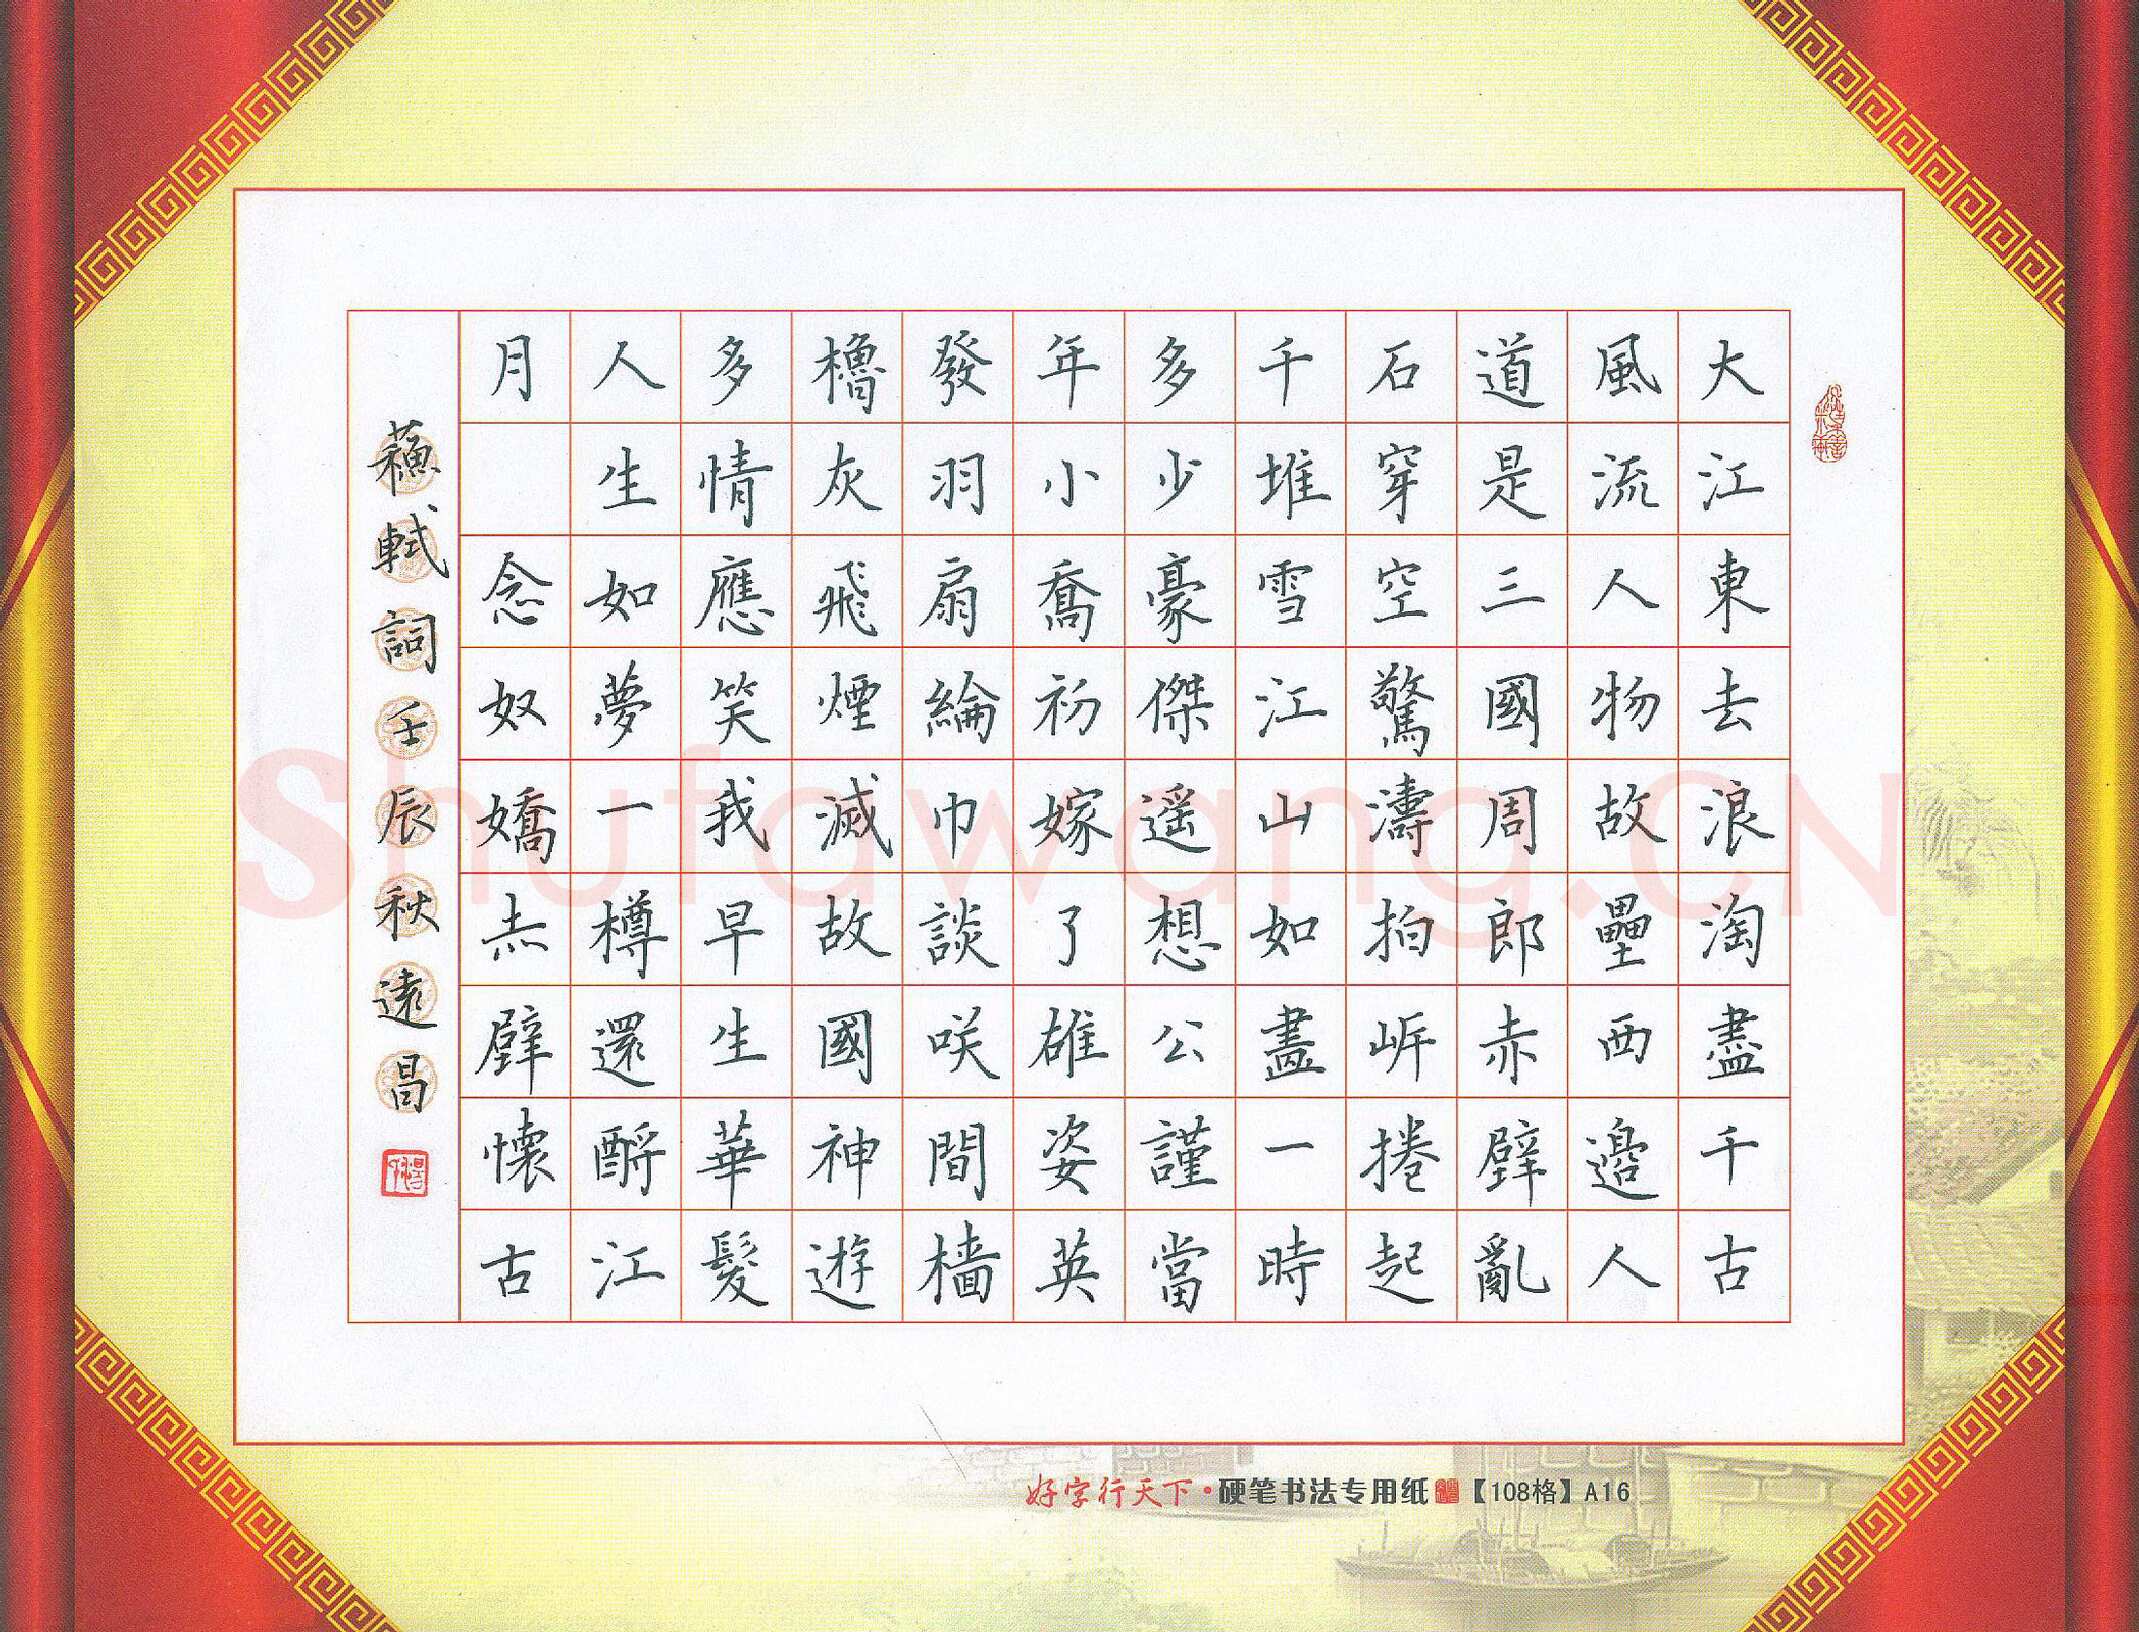 大江東去浪淘盡千古
風流人物故壘西邊人
道是三國周郎赤壁亂
石穿空驚濤拍岍捲起
千堆雪江山如畫一時
多少豪傑遥想公謹當
年小喬初嫁了雄姿英
發羽扇綸巾談咲間檣
櫓灰飛煙滅故國神遊
多情應笑我早生華髮
人生如夢一樽還酹江
月 念奴嬌赤壁懷古
蘇軾詞壬辰秋遠昌
Shufawang.CN
好字行天下·硬笔书法专用纸【108格】A16